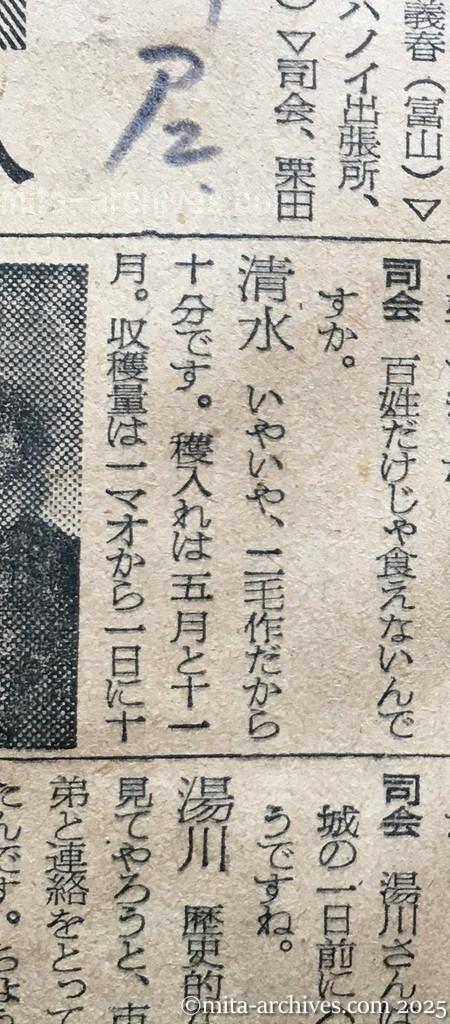 義春（富山）▽
ハノイ出張所、
）▽司会、栗田
司会　百姓だけじゃ食えないんで
すか。
清水　いやいや、二毛作だから
十分です。穫入れは五月と十一
月。収穫量は一マオから一日に十
司会　湯川さん
城の一日前に
うですね。
湯川　歴史的
見てやろうと、
弟と連絡をとって
たんです。ちょう
©mita-archives.com 2025